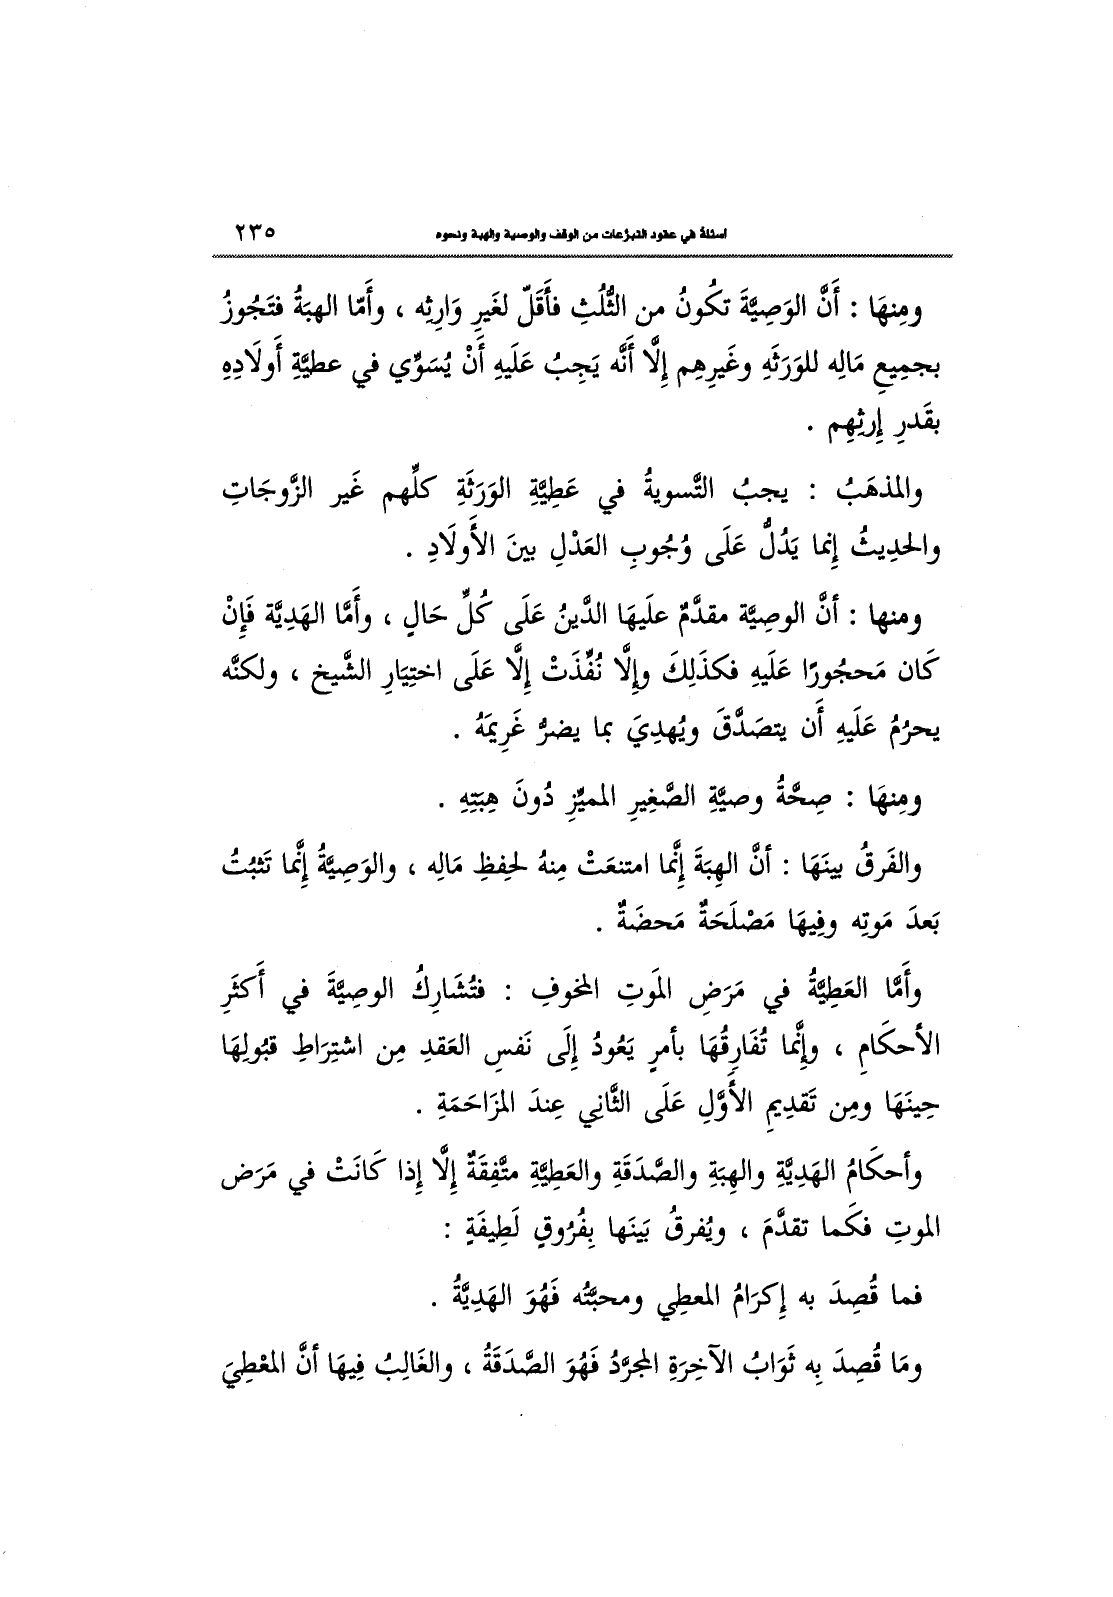 أسئلة في عقود التبرُّعات من الوقف والوصية والهبة ونحوه ٢٣٥
ومِنهَا : أَنَّ الوَصِيَّةَ تكُونُ من الثُّلُثِ فأَقَلّ لغَيرِ وَارِثِه ، وأَمّا الهِبَةُ فتَجُوزُ
بجمِيعِ مَالِه للوَرَثَهِ وغَيرِهِم إِلَّا أَنَّه يَجِبُ عَلَيهِ أَنْ يُسَوِّي في عطيَّةِ أَولَادِهِ
بقَدرِ إِرثِهِم .
والمذهَبُ : يجبُ التَّسويةُ في عَطِيَّةِ الوَرَثَةِ كلِّهم غَير الزَّوجَاتِ
والحدِيثُ إِنما يَدُلُّ عَلَى وُجُوبِ العَدْلِ بينَ الأَولَادِ .
ومنها : أنَّ الوصِيَّة مقدَّمٌ علَيهَا الدَّينُ عَلَى كُلِّ حَالٍ ، وأَمَّا الهَدِيَّة فَإِنْ
كَان مَحجُورًا عَلَيهِ فكَذَلِكَ وإِلَّا نُفِّذَتْ إِلَّا عَلَى اختِيَارِ الشَّيخ ، ولكنَّه
يحرُمُ عَلَيهِ أَن يتصَدَّقَ ويُهدِيَ بما يضرُّ غَرِيمَهُ .
ومِنهَا : صِحَّةُ وصيَّةِ الصَّغِيرِ المميِّزِ دُونَ هِبَتِهِ .
والفَرقُ بينَهَا : أنَّ الهِبَةَ إِنَّما امتنعَتْ مِنهُ لحفِظِ مَالِه ، والوَصِيَّةُ إِنَّما تَثبُتُ
بَعدَ مَوتِه وفِيهَا مَصْلَحَةٌ مَحضَةٌ .
وأَمَّا العَطِيَّةُ في مَرَضِ المَوتِ المخوفِ : فتُشَارِكُ الوصِيَّةَ في أَكثَرِ
الأحكَامِ ، وإِنَّما تُفَارِقُهَا بأمرٍ يَعُودُ إِلَى نَفسِ العَقدِ مِن اشتِرَاطِ قبُولِهَا
حِينَهَا ومِن تَقدِيمِ الأَوَّلِ عَلَى الثَّانِي عِندَ المزَاحَمَةِ .
وأحكَامُ الهَدِيَّةِ والهِبَةِ والصَّدَقَةِ والعَطِيَّةِ متَّفِقَةٌ إِلَّا إِذا كَانَتْ في مَرَض
الموتِ فكَما تقدَّمَ ، ويُفرقُ بَينَها بِفُرُوقٍ لَطِيفَةٍ :
فما قُصِدَ به إِكرَامُ المعطِي ومحبَّتُه فَهُوَ الهَدِيَّةُ .
ومَا قُصِدَ بِه ثَوَابُ الآخِرَةِ المجرَّدُ فَهُوَ الصَّدَقَةُ ، والغَالِبُ فِيهَا أنَّ المعْطِيَ